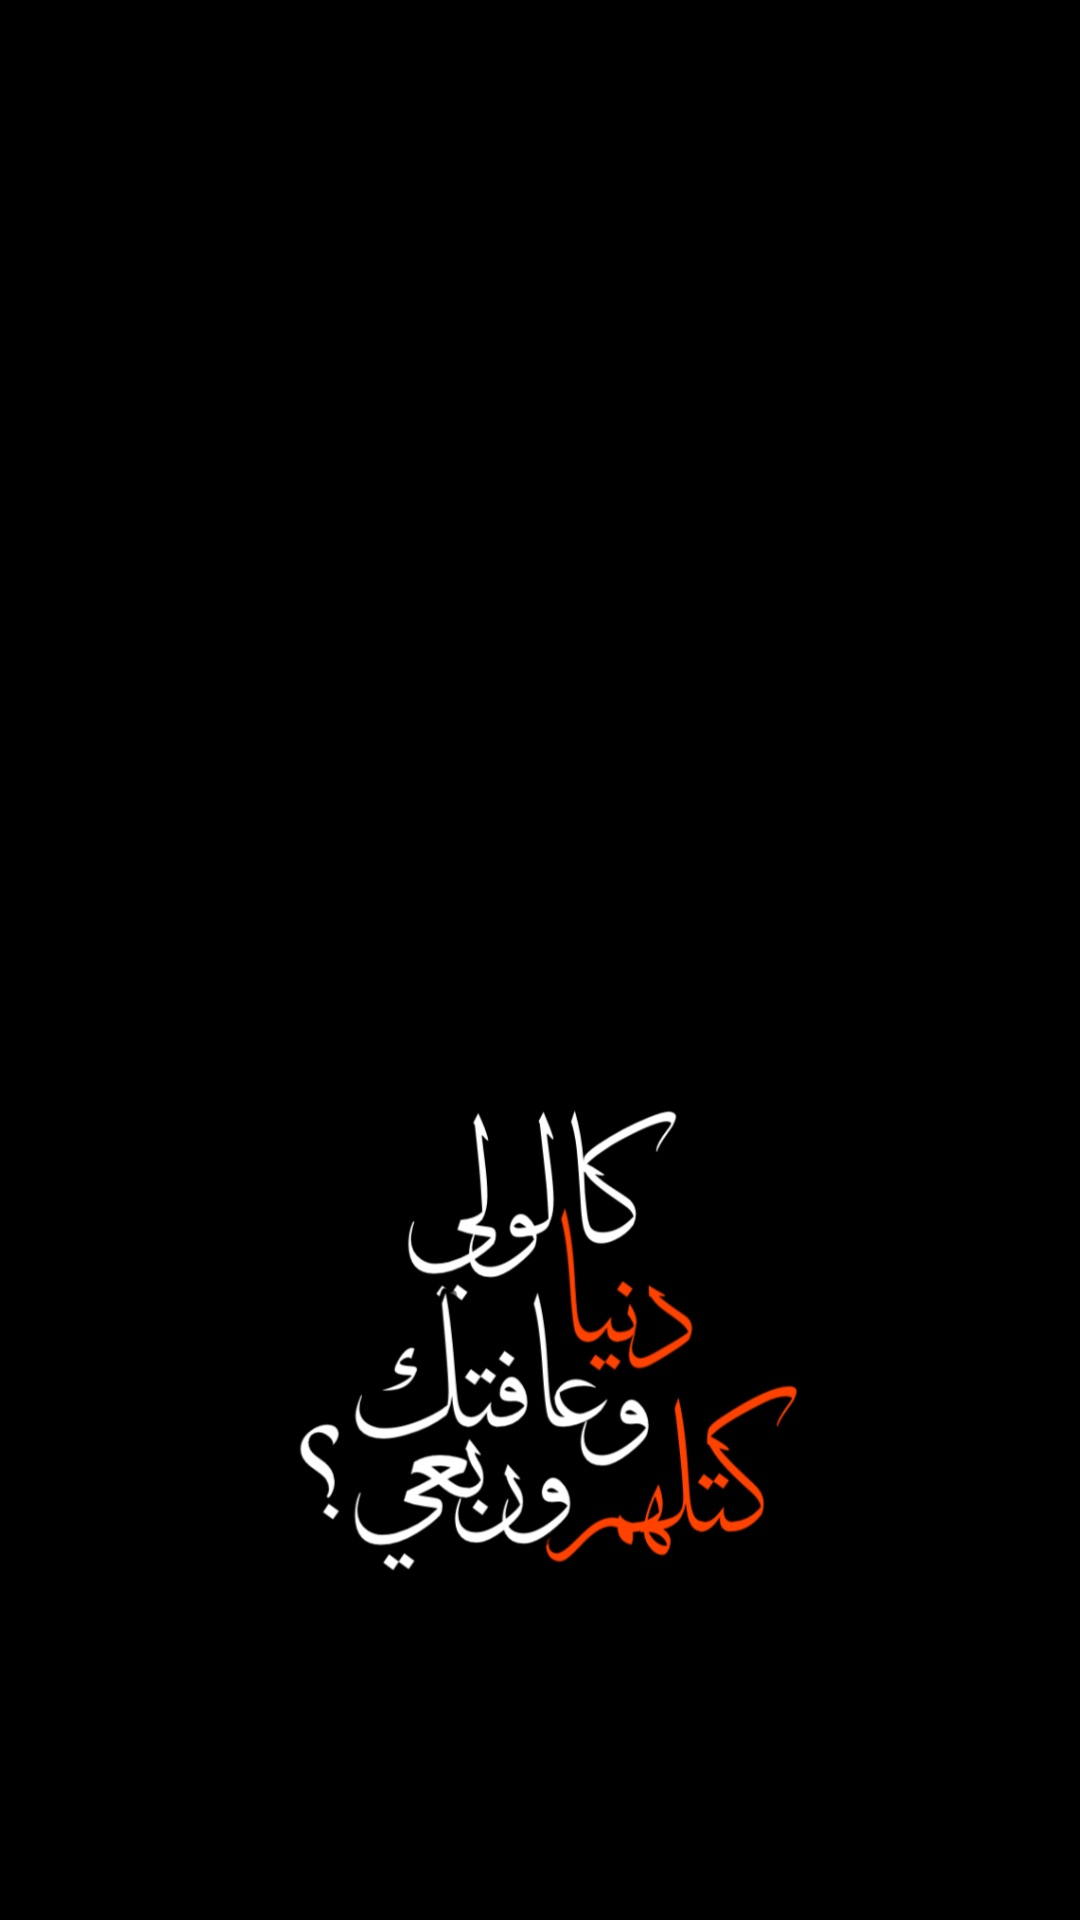 كالولي
دنيا
وعافتك
كتلهم وربعي؟